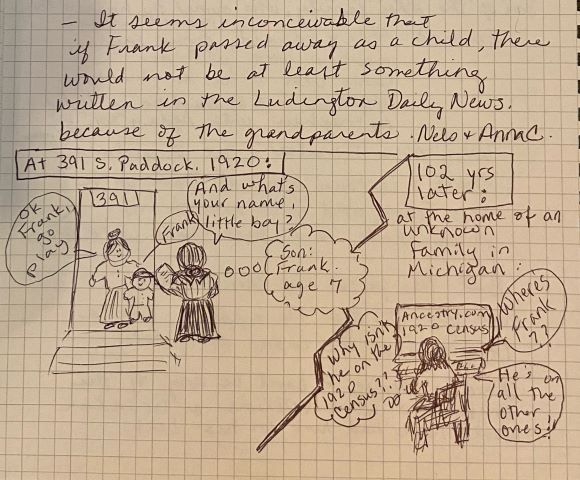 - It seems inconceivable that
if Frank passed away as a child, there
would not be at least something
written in the Ludington Daily News.
because of the grandparents. Nels & Anna C.
At 391 S. Paddock, 1920:
391
OK
Frank,
go
play
Frank
And what's
your name,
little boy?
Son:
Frank.
age 7
102 yrs
later:
at the home of an
unknown
Family in
Michigan:
Ancestry.com
1920 Census
Where's
Frank
??
Why isn't
he on the
1920
Census??
He's on
all the
other
ones!